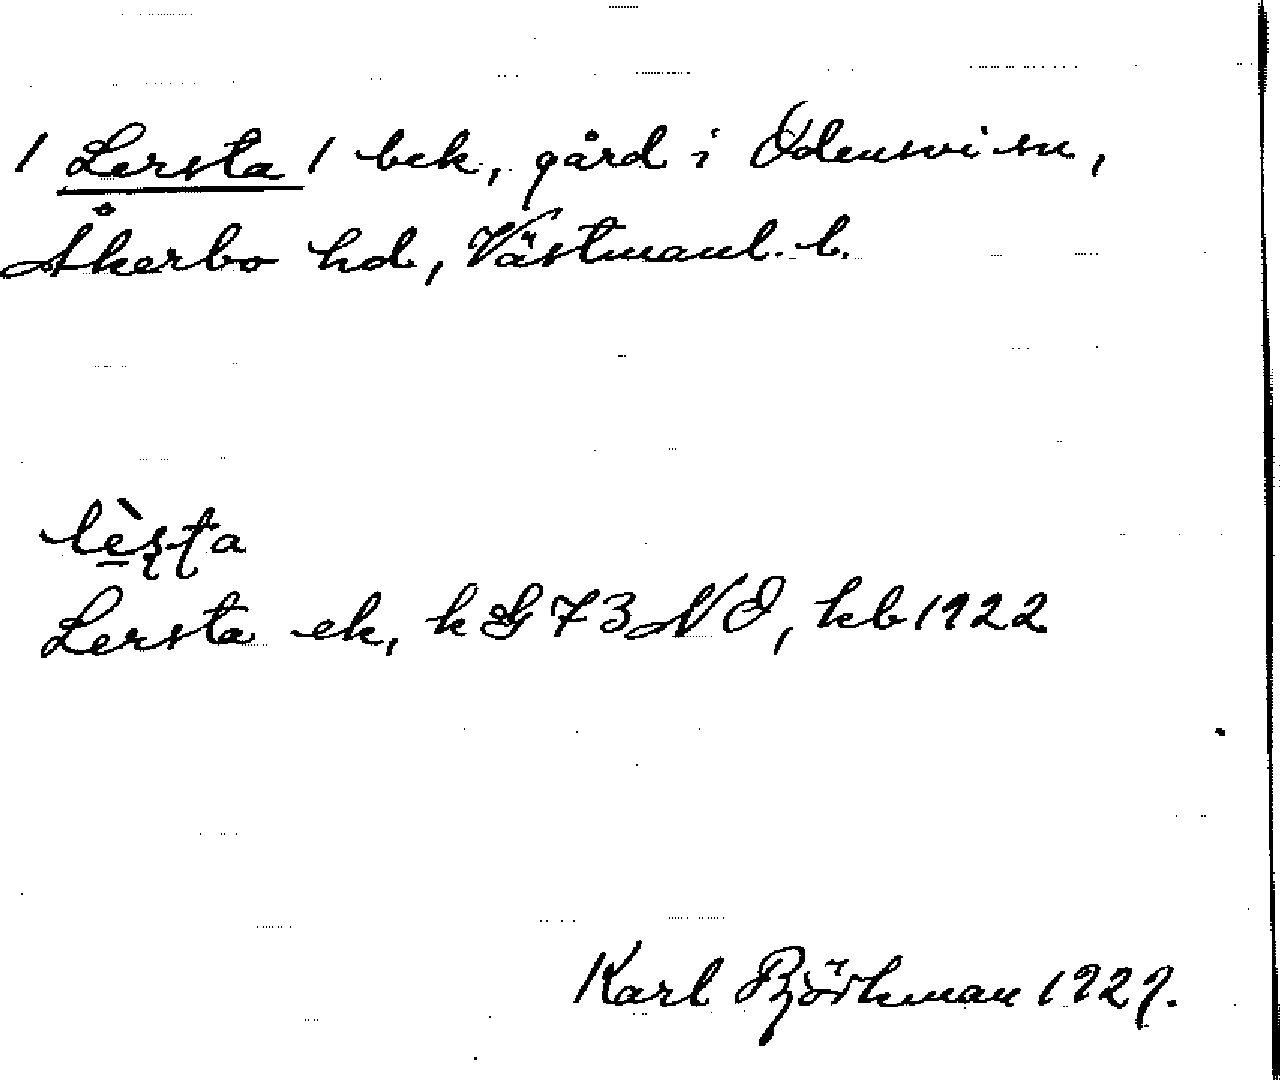 / Lersta / bek, gård i Odensvi sn,
Åkerbo hd, Västmanl. l.
lèʂʈa
Lersta ek, k G 73 NO, kb 1922
Karl Björkman 1929.